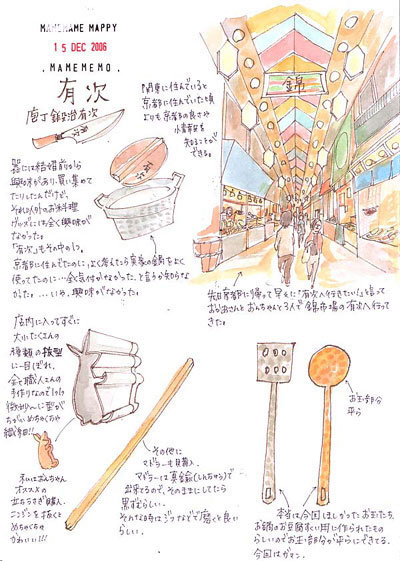 MAMEMAME MAPPY
15 DEC 2006
.MAMEMEMO.
有次
庖丁鍛冶有次
関東に住んでいると
京都に住んでいた頃
よりも京都の良さや
知ることが
できる。
錦
器には結婚前から
興味があり、買い集めて
たりしたんだけど、
それ以外のお料理
グッズにも全く興味が
なかった。
「有次」もその中の1つ。
京都に住んでたのに、よく考えたら実家の鍋をよく
使ってたのに…全然気付かなかった。と言うか知らな
かった。…いや、興味がなかった。
先日京都に帰って早々に「有次へ行きたい!」と言って
おじおさんとおんちゃんと3人で錦市場の有次へ行って
きた。
店内に入ってすぐに
大小たくさんの
種類の抜型
に一目ぼれ。
全て職人さんの
手作りなので1つ1つ
微妙〜に型が
ちがいめちゃくちゃ
繊細!!
私はおんちゃん
オススメの
立ちうさぎ購入。
ニンジンを抜くと
めちゃくちゃ
かわいい!!!
その他に
マドラーも購入。
マドラーは真鍮(しんちゅう)で
出来てるので、そのままにしてたら
黒ずむらしい。
そんな時はジフなどで磨くと良い
らしい。
お玉部分
平ら
本当は今回ほしかったお玉たち。
お鍋のお豆腐すくい用に作られたもの
らしいのでお玉部分が平らにできてる。
今回はガマン。